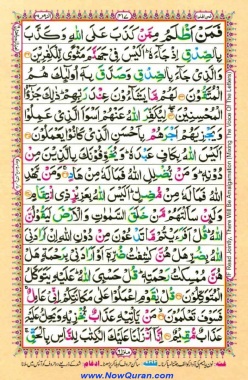 فَمَنْ اَظْلَمُ مِمَّنْ كَذَبَ عَلَى اللّٰهِ وَكَذَّبَ
بِالصِّدْقِ اِذْ جَآءَهٗ اَلَيْسَ فِيْ جَهَنَّمَ مَثْوًى لِّلْكٰفِرِيْنَ
وَالَّذِيْ جَآءَ بِالصِّدْقِ وَصَدَّقَ بِهٖٓ اُولٰٓئِكَ هُمُ
الْمُتَّقُوْنَ لَهُمْ مَّا يَشَآءُوْنَ عِنْدَ رَبِّهِمْ ذٰلِكَ جَزٰٓؤُا
الْمُحْسِنِيْنَ لِيُكَفِّرَ اللّٰهُ عَنْهُمْ اَسْوَاَ الَّذِيْ عَمِلُوْا
وَيَجْزِيَهُمْ اَجْرَهُمْ بِاَحْسَنِ الَّذِيْ كَانُوْا يَعْمَلُوْنَ
اَلَيْسَ اللّٰهُ بِكَافٍ عَبْدَهٗ وَيُخَوِّفُوْنَكَ بِالَّذِيْنَ مِنْ
دُوْنِهٖ وَمَنْ يُّضْلِلِ اللّٰهُ فَمَا لَهٗ مِنْ هَادٍ وَمَنْ يَّهْدِ
اللّٰهُ فَمَا لَهٗ مِنْ مُّضِلٍّ اَلَيْسَ اللّٰهُ بِعَزِيْزٍ ذِي انْتِقَامٍ
وَلَئِنْ سَاَلْتَهُمْ مَّنْ خَلَقَ السَّمٰوٰتِ وَالْاَرْضَ لَيَقُوْلُنَّ
اللّٰهُ قُلْ اَفَرَءَيْتُمْ مَّا تَدْعُوْنَ مِنْ دُوْنِ اللّٰهِ اِنْ اَرَادَنِيَ
اللّٰهُ بِضُرٍّ هَلْ هُنَّ كٰشِفٰتُ ضُرِّهٖٓ اَوْ اَرَادَنِيْ بِرَحْمَةٍ
هَلْ هُنَّ مُمْسِكٰتُ رَحْمَتِهٖ قُلْ حَسْبِيَ اللّٰهُ عَلَيْهِ يَتَوَكَّلُ
الْمُتَوَكِّلُوْنَ قُلْ يٰقَوْمِ اعْمَلُوْا عَلٰى مَكَانَتِكُمْ اِنِّيْ عَامِلٌ
فَسَوْفَ تَعْلَمُوْنَ مَنْ يَّاْتِيْهِ عَذَابٌ يُّخْزِيْهِ وَيَحِلُّ عَلَيْهِ
عَذَابٌ مُّقِيْمٌ اِنَّآ اَنْزَلْنَا عَلَيْكَ الْكِتٰبَ لِلنَّاسِ بِالْحَقِّ
www.NowQuran.com